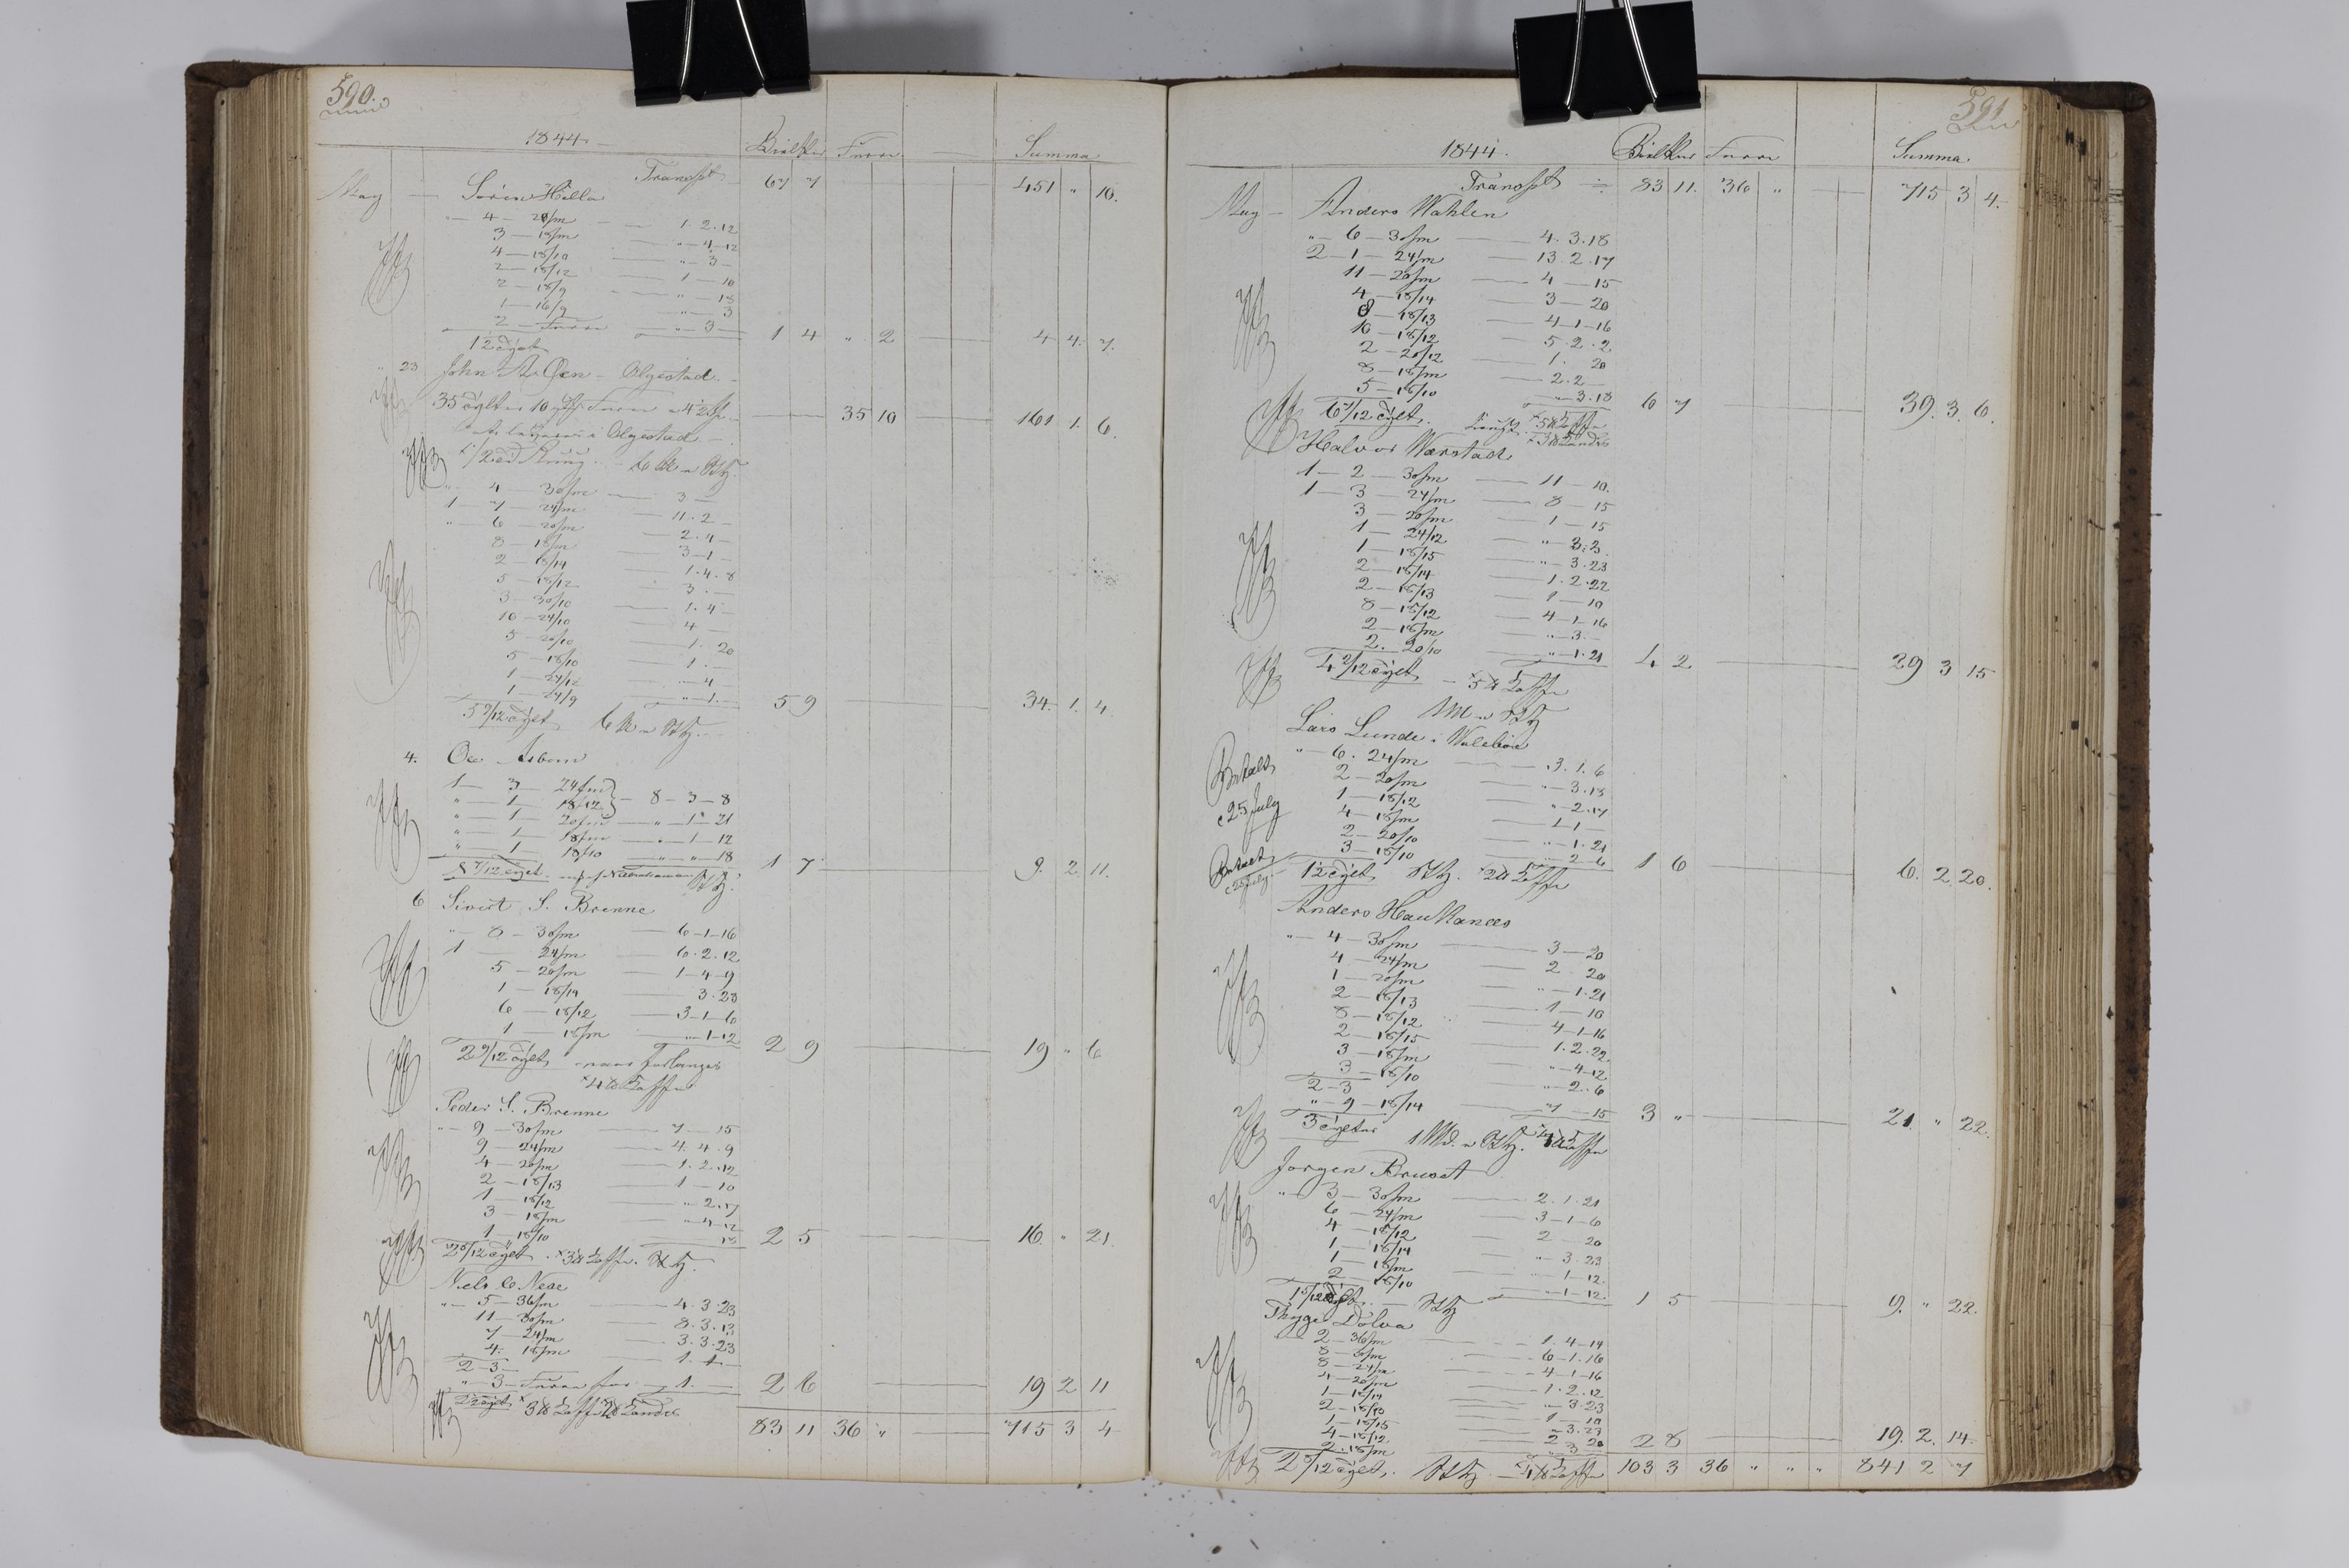 590.
1844
Bielker Furre Summa
Transpt 67 7 451 " 10.
May — Sören Hilla
" 4 — 20/m — 1. 2. 12
3 — 18/m — " 4 — 12
4 — 18/10 — " 3 —
2 — 18/12 — 1 — 10
2 — 18/9 — " — 18
1 — 16/9 — " — 3
2 — Furre — " — 3 — 1 4 " 2 4 4. 7.
12 cylt
" 23 John A. Öen — Ølgestad.
35 cylter 10 Furre 35 10 161 1. 6.
Ølgestad
" 4 — 30/m — 3 —
1 — 7 — 24/m — 11. 2 —
" 6 — 20/m — 2. 4 —
8 — 18/m — 3 — 1 —
2 — 18/14 — 1. 4. 8
5 — 18/12 — 3. —
3 — 30/10 — 1. 4 —
10 — 24/10 — 4 —
5 — 20/10 — 1. 20
5 — 18/10 — 1. —
1 — 24/12 — " 4 —
1 — 24/9 — " 1. — 5 9 34. 1. 4
5 9/12 cylt
4. Ole
1 — 3 — 24/m
" — 1 — 18/12 } — 8 — 3 — 8
" — 1 — 20/m — " — 1 — 21
" — 1 — 18/m — " — 1 — 12
" — 1 — 18/10 — " — " — 18 1 7 9. 2. 11.
7/12 cylt
6 Sivert S. Brenne
" — 8 — 30/m — 6 — 1 — 16
1 24/m — 6. 2. 12
5 — 20/m — 1 — 4 — 9
1 — 18/14 — 3. 23
6 — 18/12 — 3 — 1 — 6
1 — 18/m — " — 1 — 12 2 9 19 " 6
2 9/12 cylt
4 ℔ Kaffe
Peder S. Brenne
" — 9 — 30/m — 7 — 15
9 — 24/m — 4. 4. 9
4 — 20/m — 1. 2. 12
2 — 18/13 — 1 — 10
1 — 18/12 — " 2. 17
3 — 18/m — " 4 — 12
1 — 18/10 — 18 2 5 16. " 21.
2 5/12 cylt. 3 ℔ Kaffe.
Niels C. Nese
" — 5 — 36/m — 4. 3. 23
11 — 30/m — 8. 3. 13
7 — 24/m — 3. 3. 23
4. 18/m — 1. 1 —
2 — 3 —
" — 3 — Furre for — 1. — 2 6 19 2 11
3 ℔ Kaffe
83 11 36 " 715 3 4
591
1844.
Bielker Furre Summa
Transpt 83 11. 36 " 715 3 4.
May — Anders Wahlen
" — 6 — 30/m — 4. 3. 18
2 — 1 — 24/m — 13. 2. 17
11 — 20/m — 4 — 15
4 — 18/14 — 3 — 20
8 — 18/13 — 4 — 1 — 16
10 — 18/12 — 5. 2. 2
2 — 20/12 — 1. 20
8 — 18/m — 2. 2 —
5 — 18/10 — " 3. 18 6 7 39. 3. 6.
6 7/12 cylt. 5 ℔ Kaffe
Halvor Wærstad
1 — 2 — 30/m — 11 — 10.
1 — 3 — 24/m — 8 — 15
3 — 20/m — 1 — 15
1 — 24/12 — " 3. 3.
1 — 18/15 — " 3. 23
2 — 18/14 — 1. 2. 22
2 — 18/13 — 1 — 10
8 — 18/12 — 4 — 1 — 16
2 — 18/m — " 3. —
2. 20/10 — " 1. 21 4 2 29 3 15
4 2/12 cylt — 5 ℔ Kaffe
Lars Lunde i Waleböe
" — 6. 24/m — 3. 1. 6
Betalt 2 — 20/m — " 3. 18
1 — 18/12 — " 2. 17
25 July 4 — 18/m — 1 — 1 —
2 — 20/10 — " 1. 21
3 — 18/10 — " 2 — 6 1 6 6. 2. 20.
Betalt 25 July
12 cylt 2 ℔ Kaffe
Anders Haukanæs
" — 4 — 30/m — 3 — 20
4 — 24/m — 2. 20
1 — 20/m — " 1. 21
2 — 18/13 — 1 — 10
8 — 18/12 — 4 — 1 — 16
2 — 18/15 — 1. 2. 22
3 — 18/m — " 4 — 12
3 — 18/10 — " 2. 6
2 — 3
" — 9 — 18/14 — 7 — 15 3 " 21. " 22.
3 cylter 4 ℔ Kaffe
Jorgen Bruset
" 3 — 30/m — 2. 1. 21
6 — 24/m — 3 — 1 — 6
4 — 18/12 — 2 — 20
1 — 18/14 — " 3. 23
1 — 18/m — " 1 — 12.
2 — 18/10 — " 1 — 12. 1 5 9. " 22.
1 5/12 cylt.
Thyge Dolva
2 — 36/m — 1. 4 — 14
8 — 30/m — 6 — 1. 16
8 — 24/m — 4 — 1 — 16
4 — 20/m — 1. 2. 12
1 — 18/14 — " 3. 23
2 — 18/13 — 1 — 10
1 — 18/15 — " 3. 23
4 — 18/12 — 2 20
2. 18/m — " 3 2 8 19. 2. 14.
2 8/12 cylt. 4 ℔ Kaffe 103 3 36 " " " 841 2 7